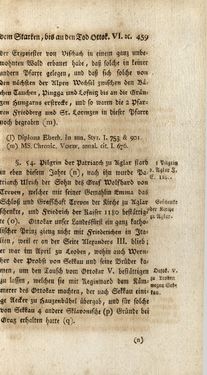 dem Starken, bis an den Tod Ottok. VI. ꝛc. 459
der Erzpriester von Vischach in einem ganz unbe-
wohnten Wald erbauet habe, daß solche in keiner
andere Pfarre gelegen, und daß sich solche von
den nächsten der Alpen Wechsel zwischen den Bä-
chen Tauchen, Pingga und Lafniz bis an die Grän-
zen Hungarns erstreckt, und so waren die 2 Pfar-
ren Friedberg und St. Lorenzen in dieser Pfarre
noch begraben (m).
(l) Diploma Eberh. in mm. Styr. I. 753 & 901.
(m) MS. Chronic. Vorav. annal. cit. I. 676.
§. 54. Pilgrin der Patriarch zu Aglar starb
in eben diesem Jahre (n), nach ihm wurde Pa-
triarch Ulrich der Sohn des Graf Wolfhard von
Treven, welcher mit seiner Gemahlin Emma das
Schloß und Grafschaft Treven der Kirche zu Aglar
schenkte, und Friedrich der Kaiser 1180 bestättigte
(o). Ottokar unser Landesfürst ein ganz katholi-
scher Prinz gieng nicht mit Friederichen in Ita-
lien, weil er an der Seite Alexanders III. blieb;
er war im April zu Leoben, wohin auch Wern-
her der Probst von Sekkau und seine Brüder ka-
men, um den Tausch von Ottokar V. bestättigen
zu lassen, welchen sie mit Regimward dem Käm-
merer des Ottokar machten, nach dem Sekkau eini-
ge Aecker zu Hauzenbühel übergab, und für solche
von Sekkau 4 andere Sklavonische (p) Gründe bei
Graz erhalten hatte (q).
(n)